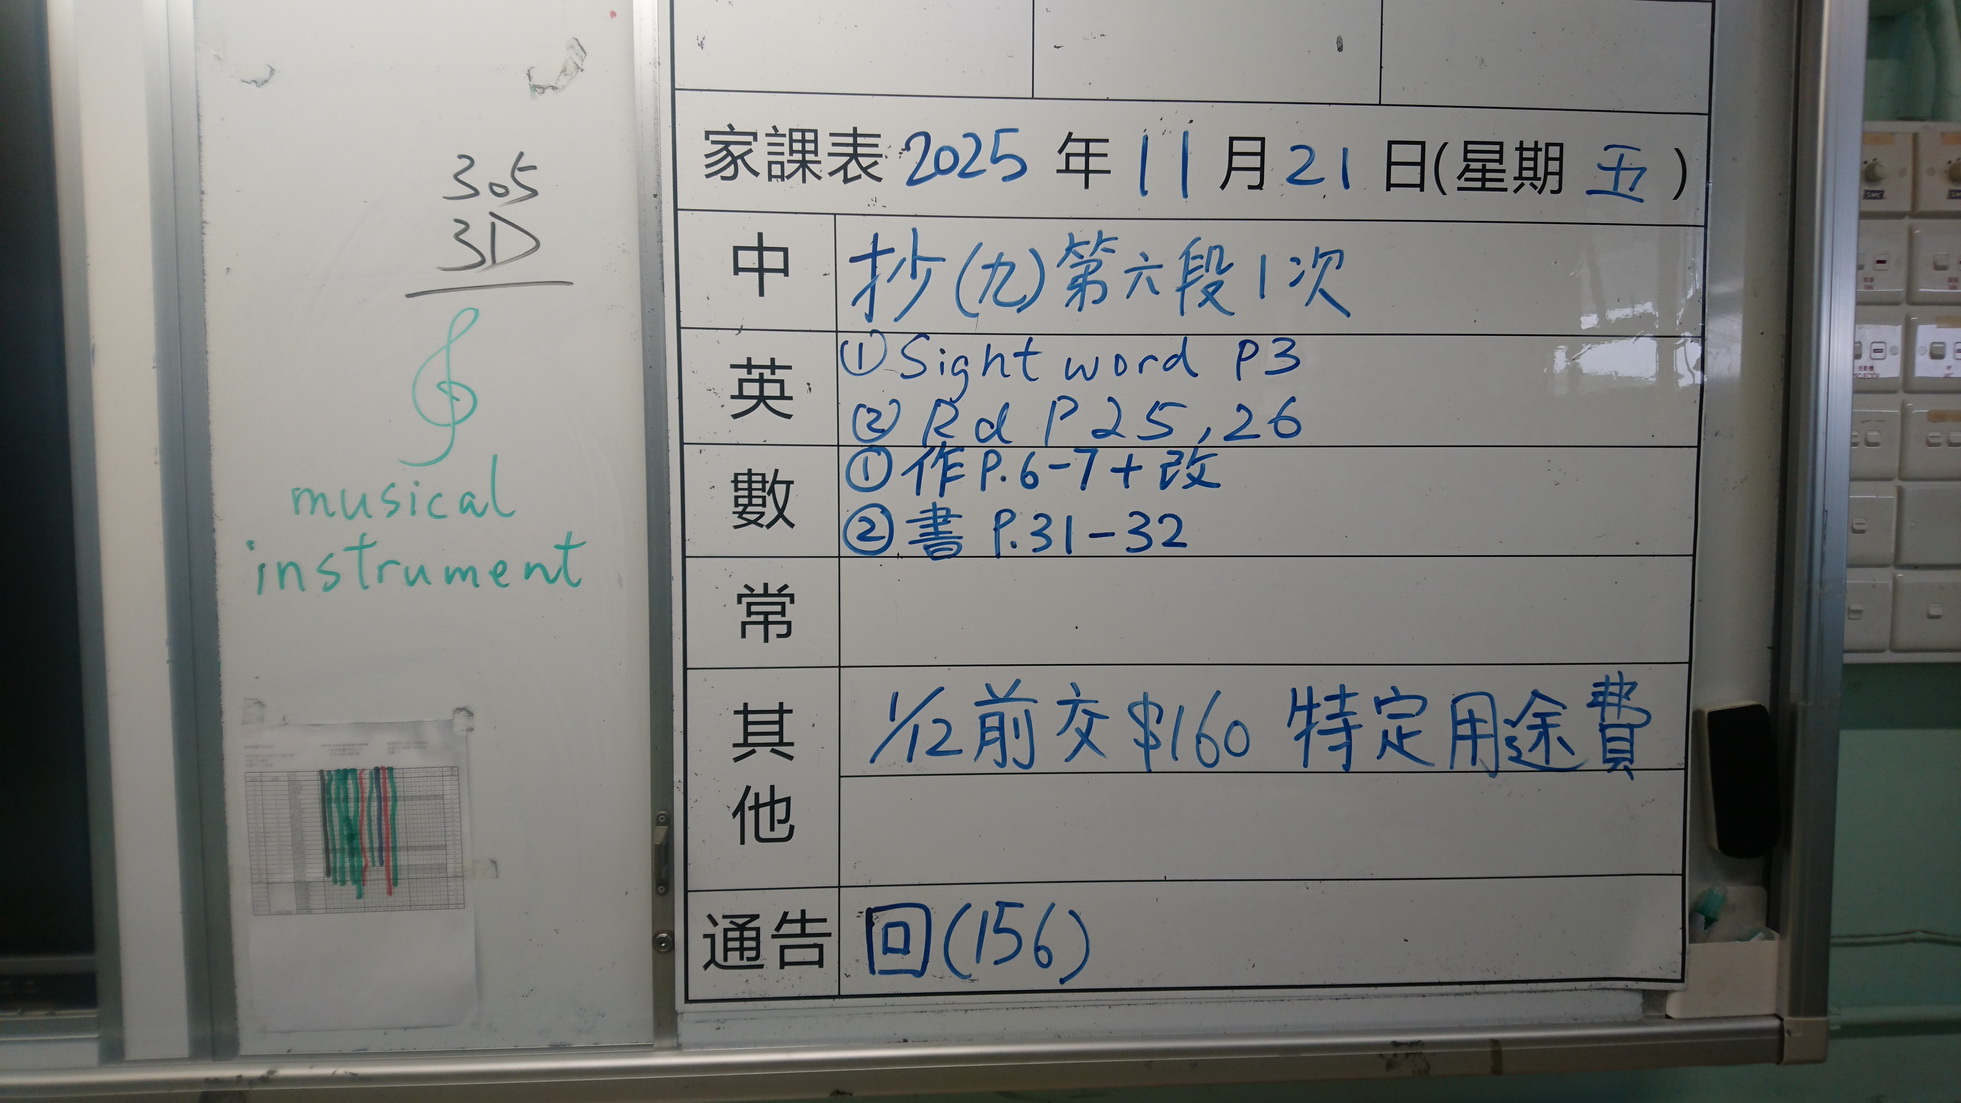 305
3D
musical
instrument
家課表 2025 年 11 月 21 日(星期 五 )
中 抄(九)第六段1次
英 ① Sight word P3
② Rd P 25, 26
數 ① 作 P.6-7+改
② 書 P.31-32
常
其他 1/12前交$160 特定用途費
通告 回(156)